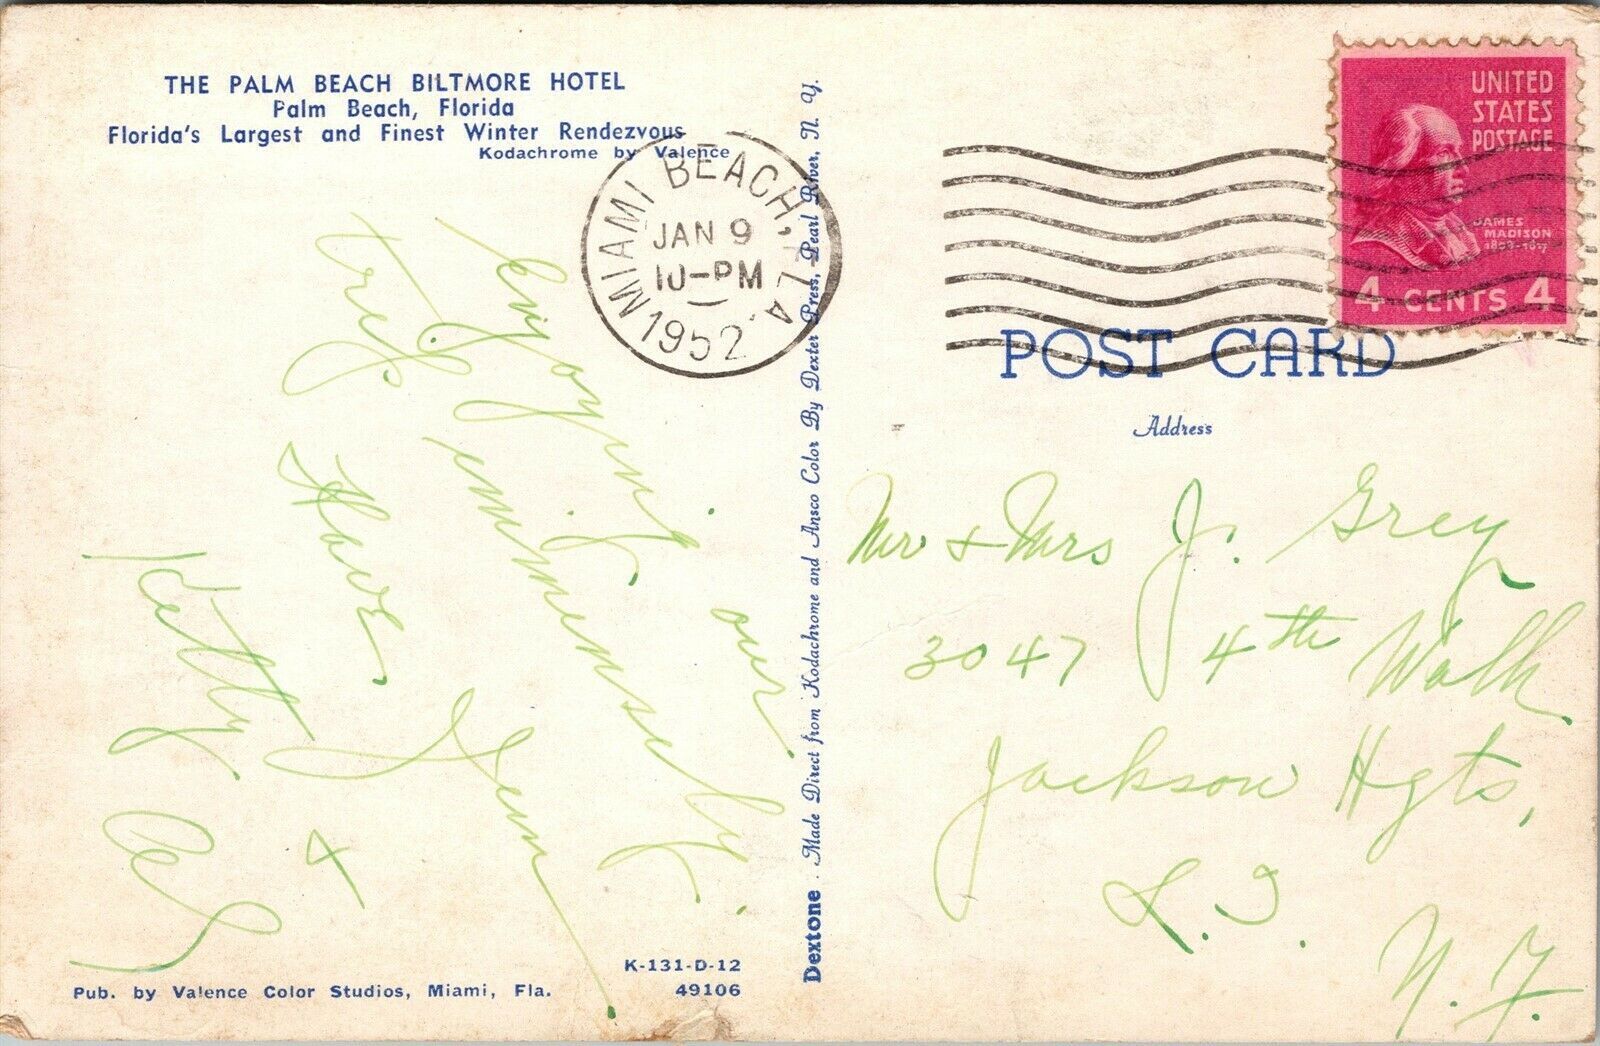 THE PALM BEACH BILTMORE HOTEL
Palm Beach, Florida
Florida's Largest and Finest Winter Rendezvous
Kodachrome by Valence
Enjoying our
trip immensely.
Love,
Kitty &
Al
K-131-D-12
49106
Pub. by Valence Color Studios, Miami, Fla.
Dextone . Made Direct from Kodachrome and Ansco Color By Dexter Press, Pearl River, N. Y.
MIAMI BEACH, FLA.
JAN 9
10-PM
1952
UNITED
STATES
POSTAGE
JAMES
MADISON
4 CENTS 4
POST CARD
Address
Mr & Mrs J. Grey
3047 4th Walk.
Jackson Hgts,
L. I.
N. Y.